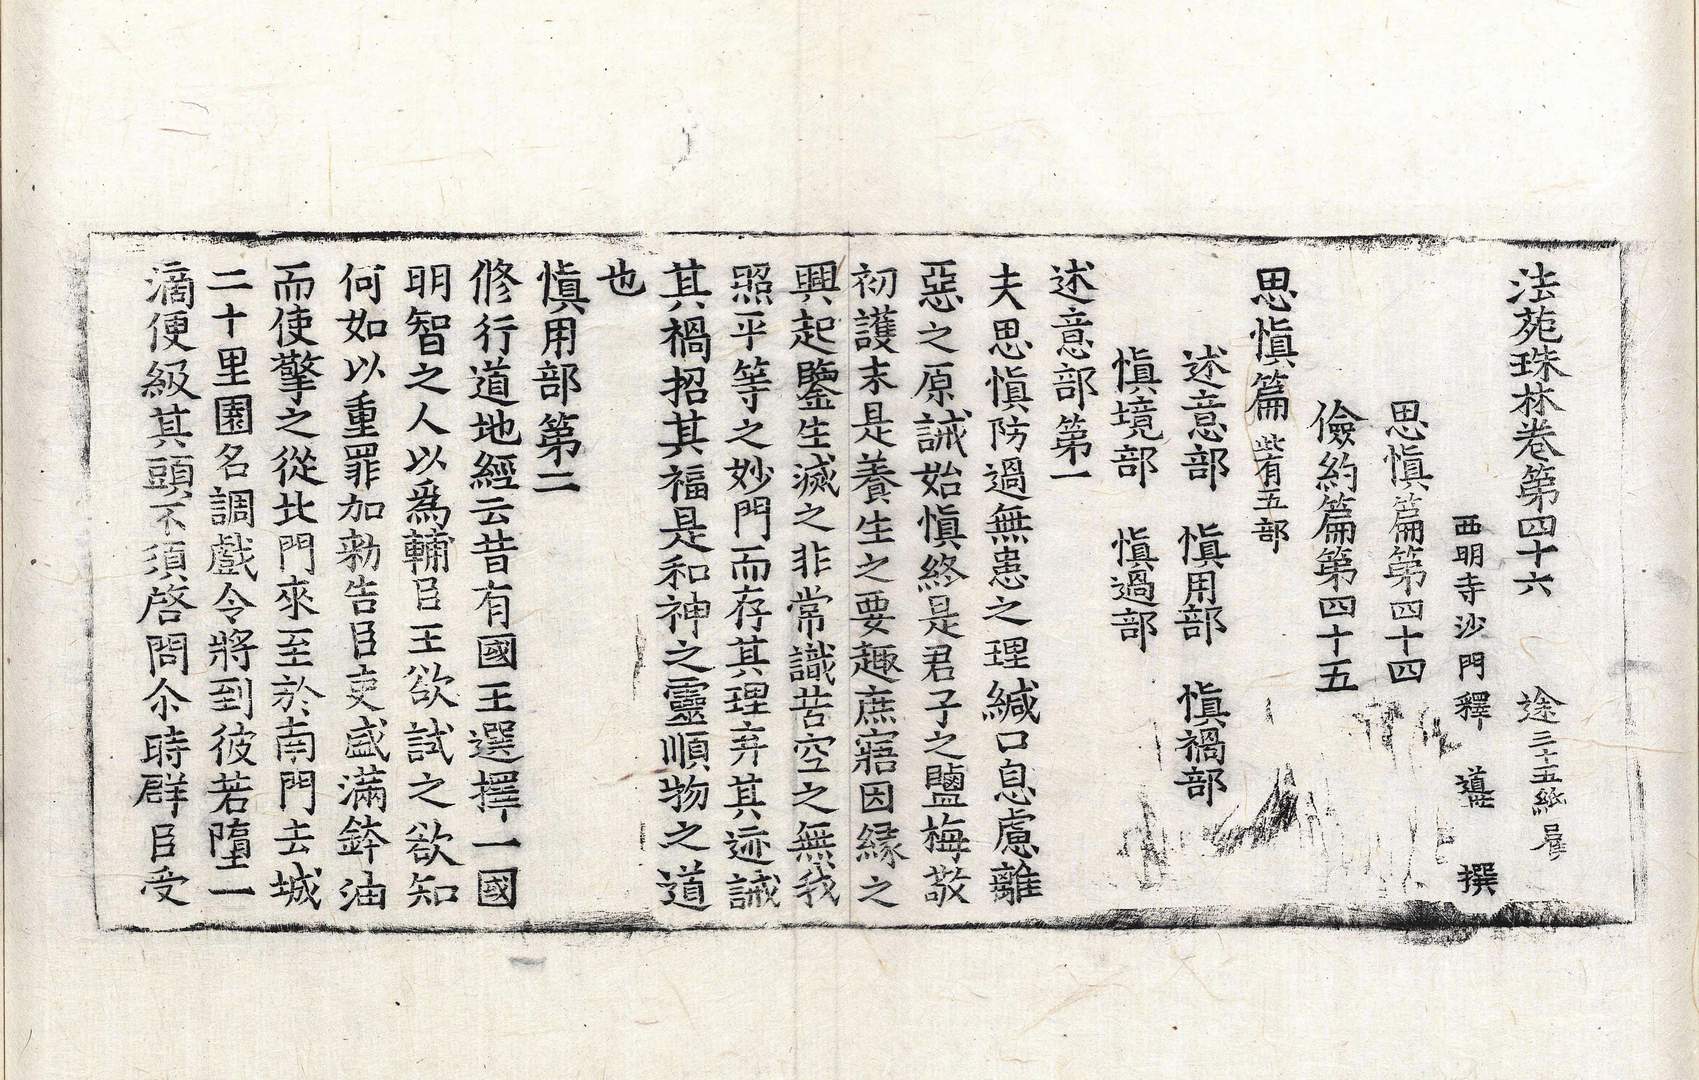 法苑珠林卷第四十六　途　三十五紙
西明寺沙門釋　道世　撰
思愼篇第四十四
儉約篇第四十五
思愼篇此有五部
述意部　愼用部　愼禍部
愼境部　愼過部
述意部第一
夫思愼防過無患之理緘口息慮離
惡之原誡始愼終是君子之鹽梅敬
初護末是養生之要趣庶寤因緣之
興起鑒生滅之非常識苦空之無我
照平等之妙門而存其理弃其迹誡
其禍招其福是和神之靈順物之道
也
愼用部第二
修行道地經云昔有國王選擇一國
明智之人以爲輔臣王欲試之欲知
何如以重罪加勑告臣吏盛滿鉢油
而使擎之從北門來至於南門去城
二十里園名調戲令將到彼若墮一
滴便級其頭不須啓問尒時群臣受